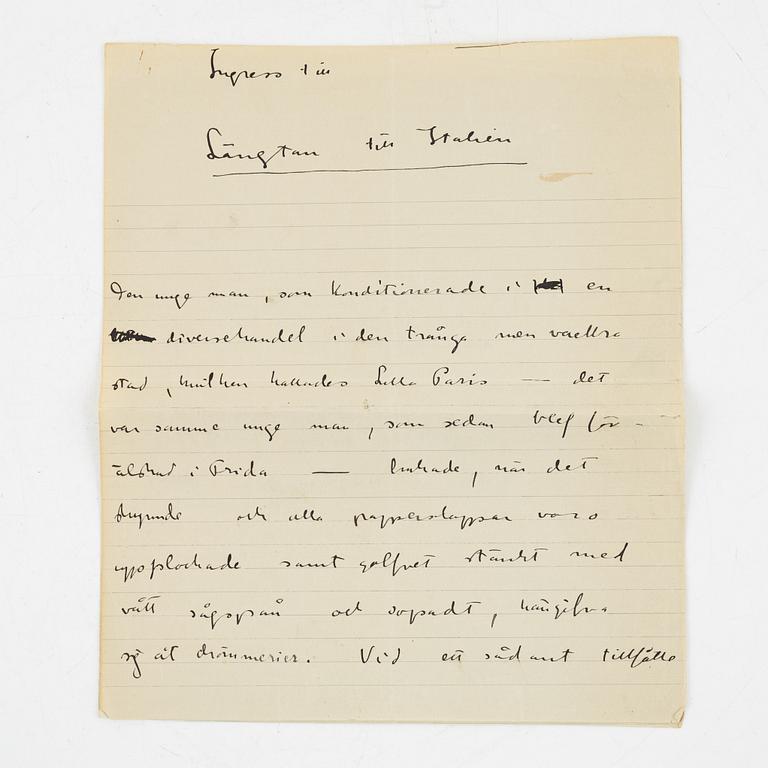 Ingress till
Längtan till Italien
Den unge man, som konditionerade i en
diversehandel i den trånga men vackra
stad, hvilken kallades Lilla Paris — det
var samme unge man, som sedan blef för-
älskad i Frida — brukade, när det
skymde och alla papperslappar voro
uppplockade samt golfvet stänkt med
vått sågspån och sopadt, hängifva
sig åt drömmerier. Vid ett sådant tillfälle